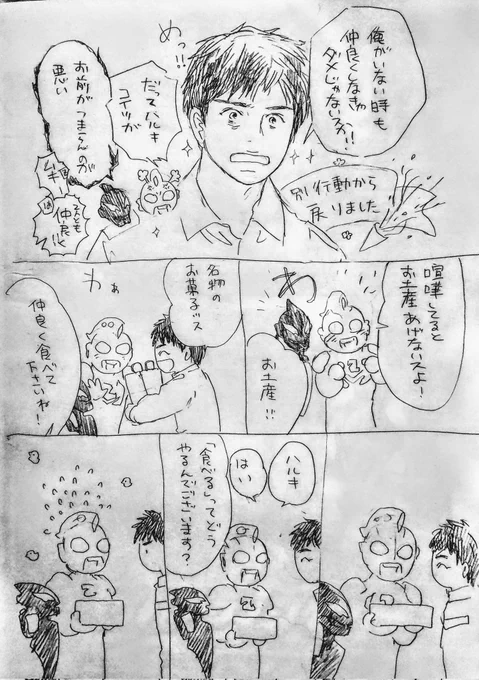 俺がいない時も
仲良くしなきゃ
ダメじゃないスか!!
めっ!!
だってハルキ
コイツが
お前がつまらんのが
悪い
ムキ
2人とも
仲良く
別行動から
戻りました
喧嘩してると
お土産あげないスよ!
わ
お土産!!
名物の
お菓子ッス
わぁ
仲良く食べて
下さいね!
ハルキ
はい
「食べる」ってどう
やるんでございます?